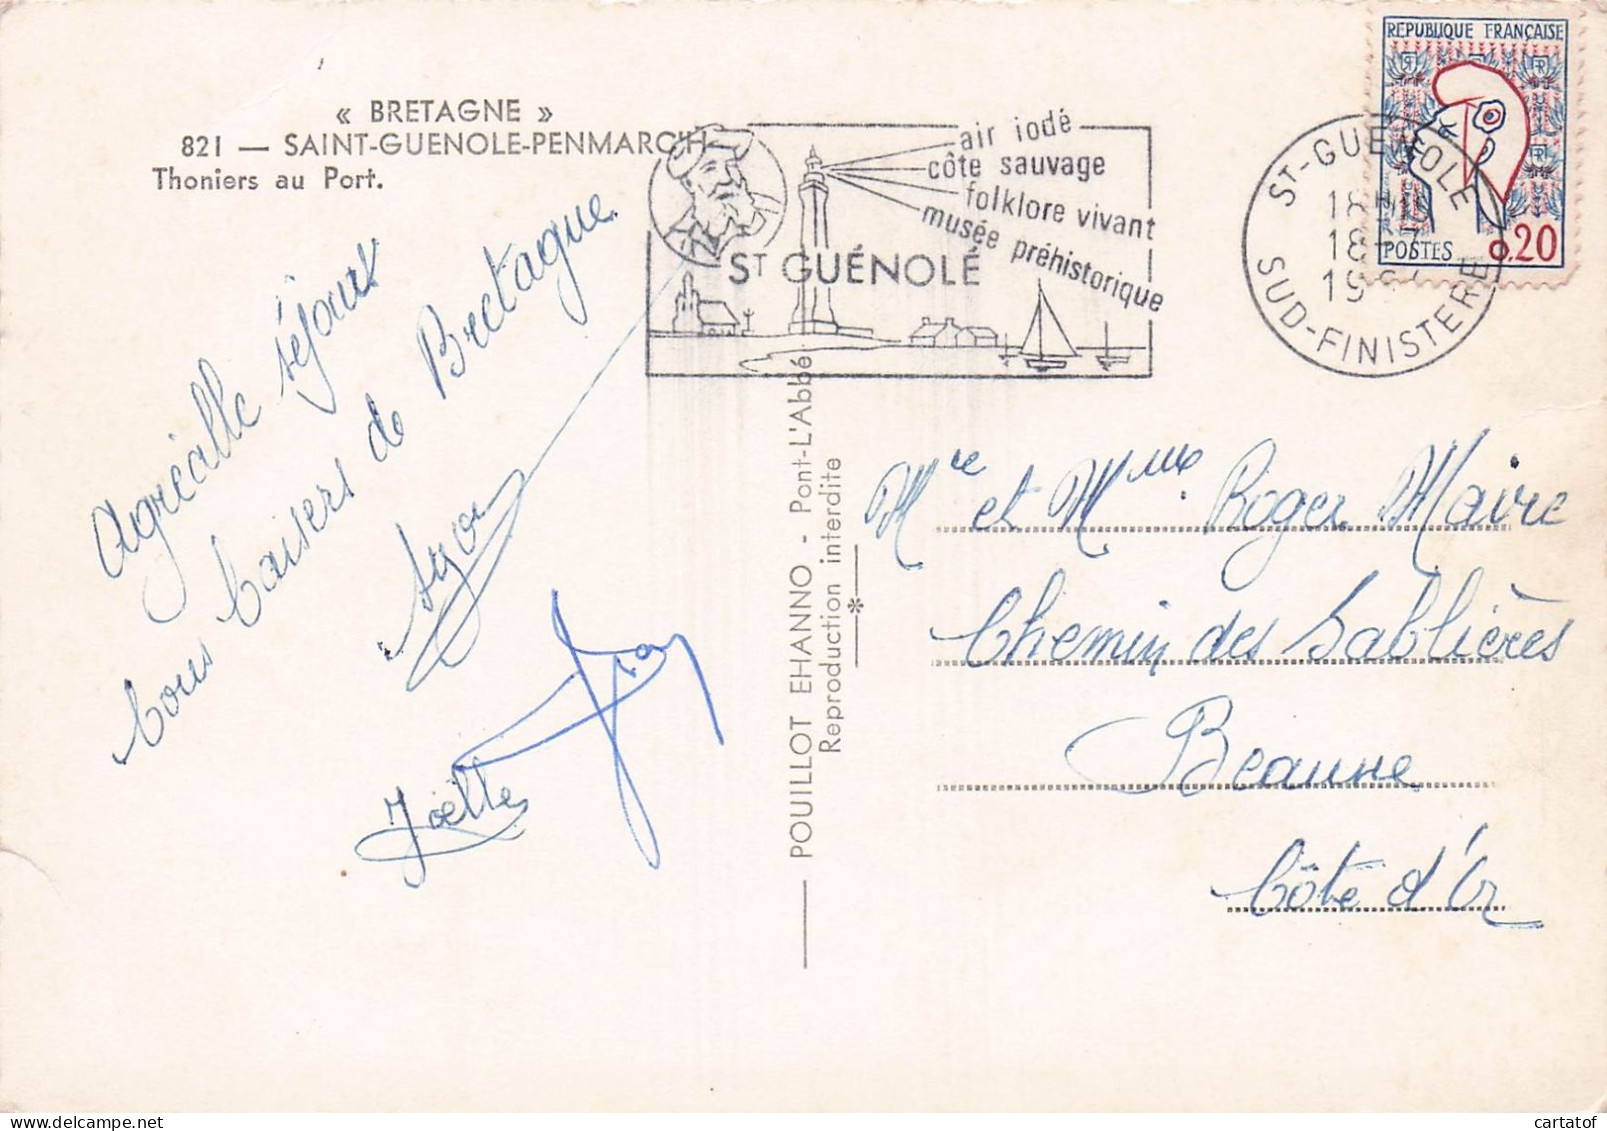 « BRETAGNE »
821 — SAINT-GUENOLE-PENMARC'H
Thoniers au Port.
Agréable séjour
bons baisers de Bretagne
Joëlle
POUILLOT EHANNO - Pont-L'Abbé
Reproduction interdite
air iodé
côte sauvage
folklore vivant
musée préhistorique
ST GUÉNOLÉ
ST-GUENOLE
18H
18-7
19
SUD-FINISTERE
REPUBLIQUE FRANÇAISE
POSTES 0,20
Mr et Mme Roger Maire
Chemin des Sablières
Beaune
Côte d'Or
cartatof
www.delcampe.net